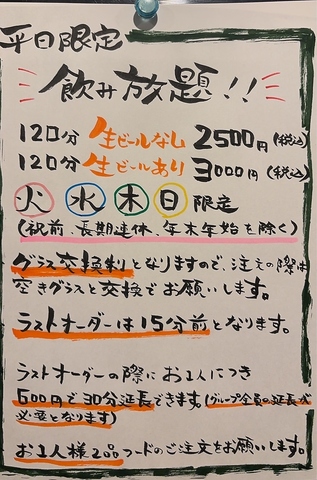 平日限定
飲み放題!!
120分 生ビールなし 2500円(税込)
120分 生ビールあり 3000円(税込)
火 水 木 日 限定
(祝前、長期連休、年末年始を除く)
グラス交換制となりますので、注文の際は
空きグラスと交換でお願いします。
ラストオーダーは15分前となります。
ラストオーダーの際にお1人につき
600円で30分延長できます。(グループ全員の延長が
必要となります)
お1人様2品フードのご注文をお願いします。